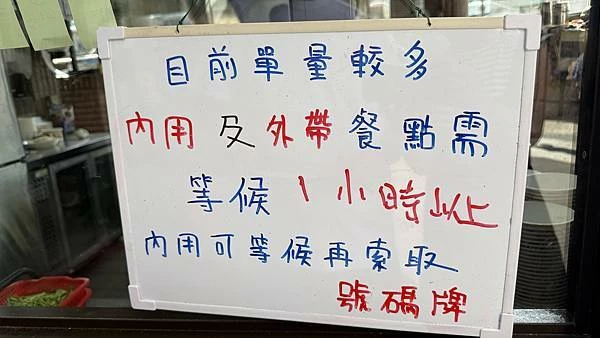 目前單量較多
內用及外帶餐點需
等候1小時以上
內用可等候再索取
號碼牌